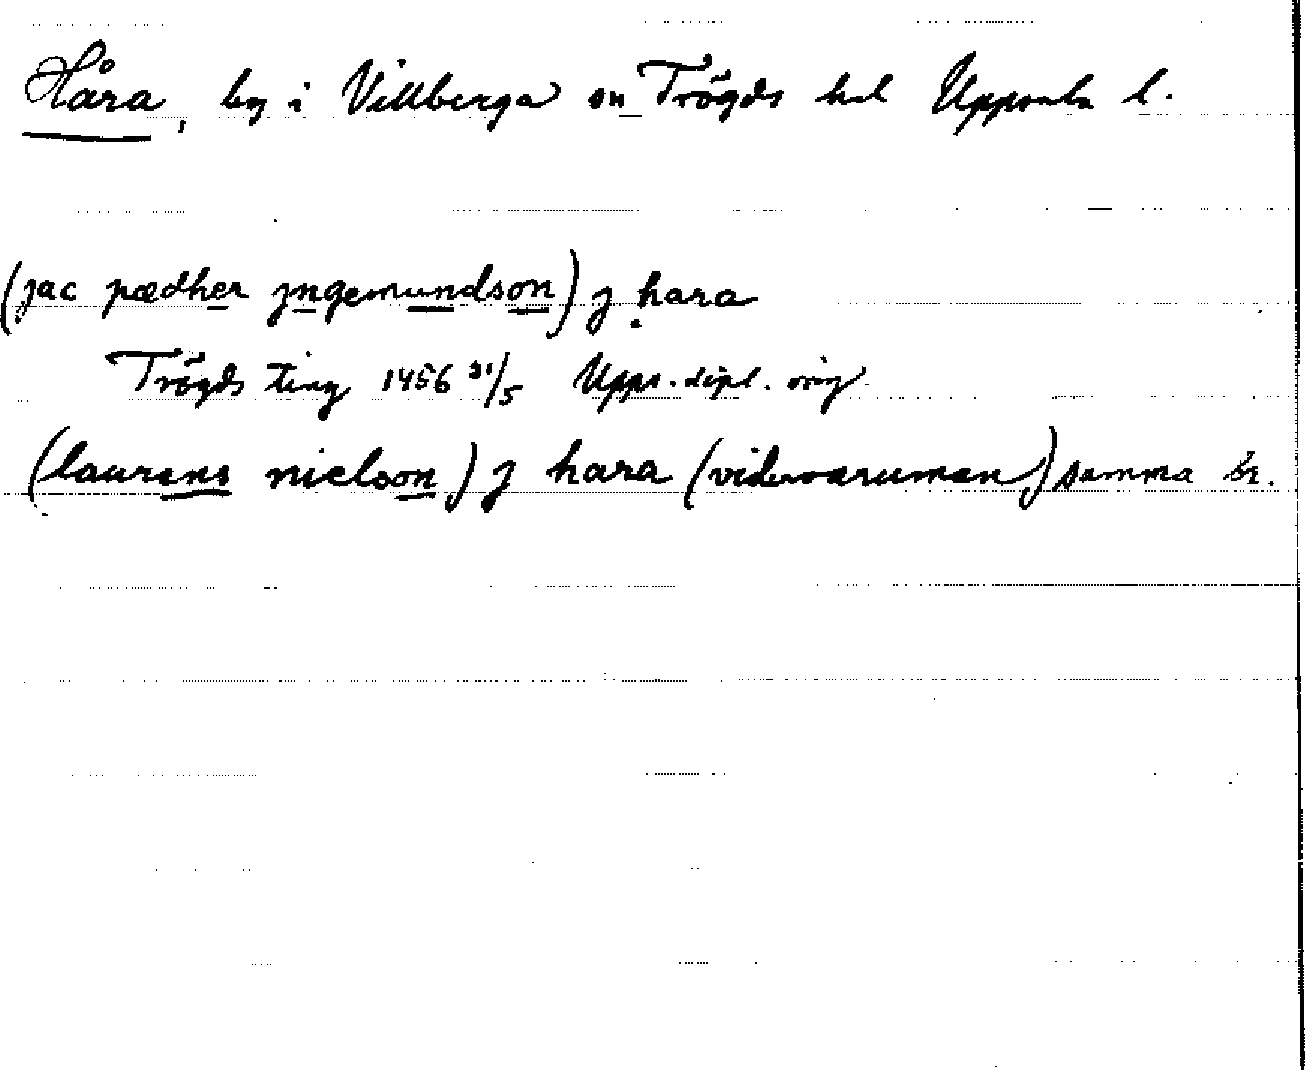 Håra, by i Villberga sn Trögds hd Uppsala l.
(jac pædher jngemundson) j hara
Trögds ting 1456 31/5 Upps. dipl. orig
(laurens nielson) j hara (viderwaruman) samma br.